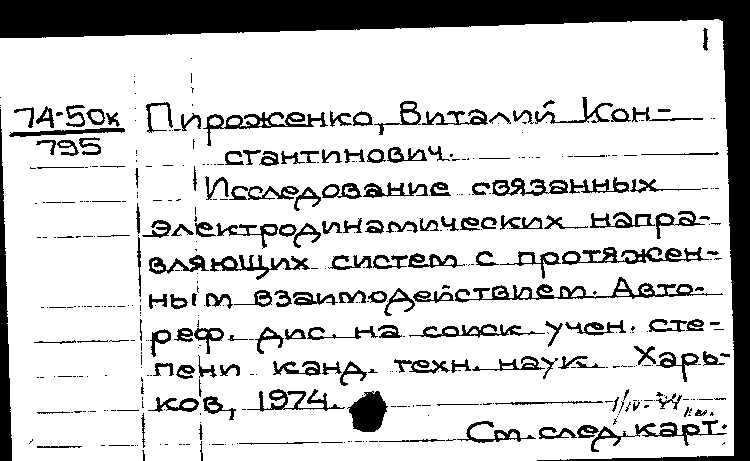 1
74-50к Пироженко, Виталий Кон-
795
стантинович.
Исследование связанных
электродинамических напра-
вляющих систем с протяжен-
ным взаимодействием. Авто-
реф. дис. на соиск. учен. сте-
пени канд. техн. наук. Харь-
ков, 1974.
См. след. карт.